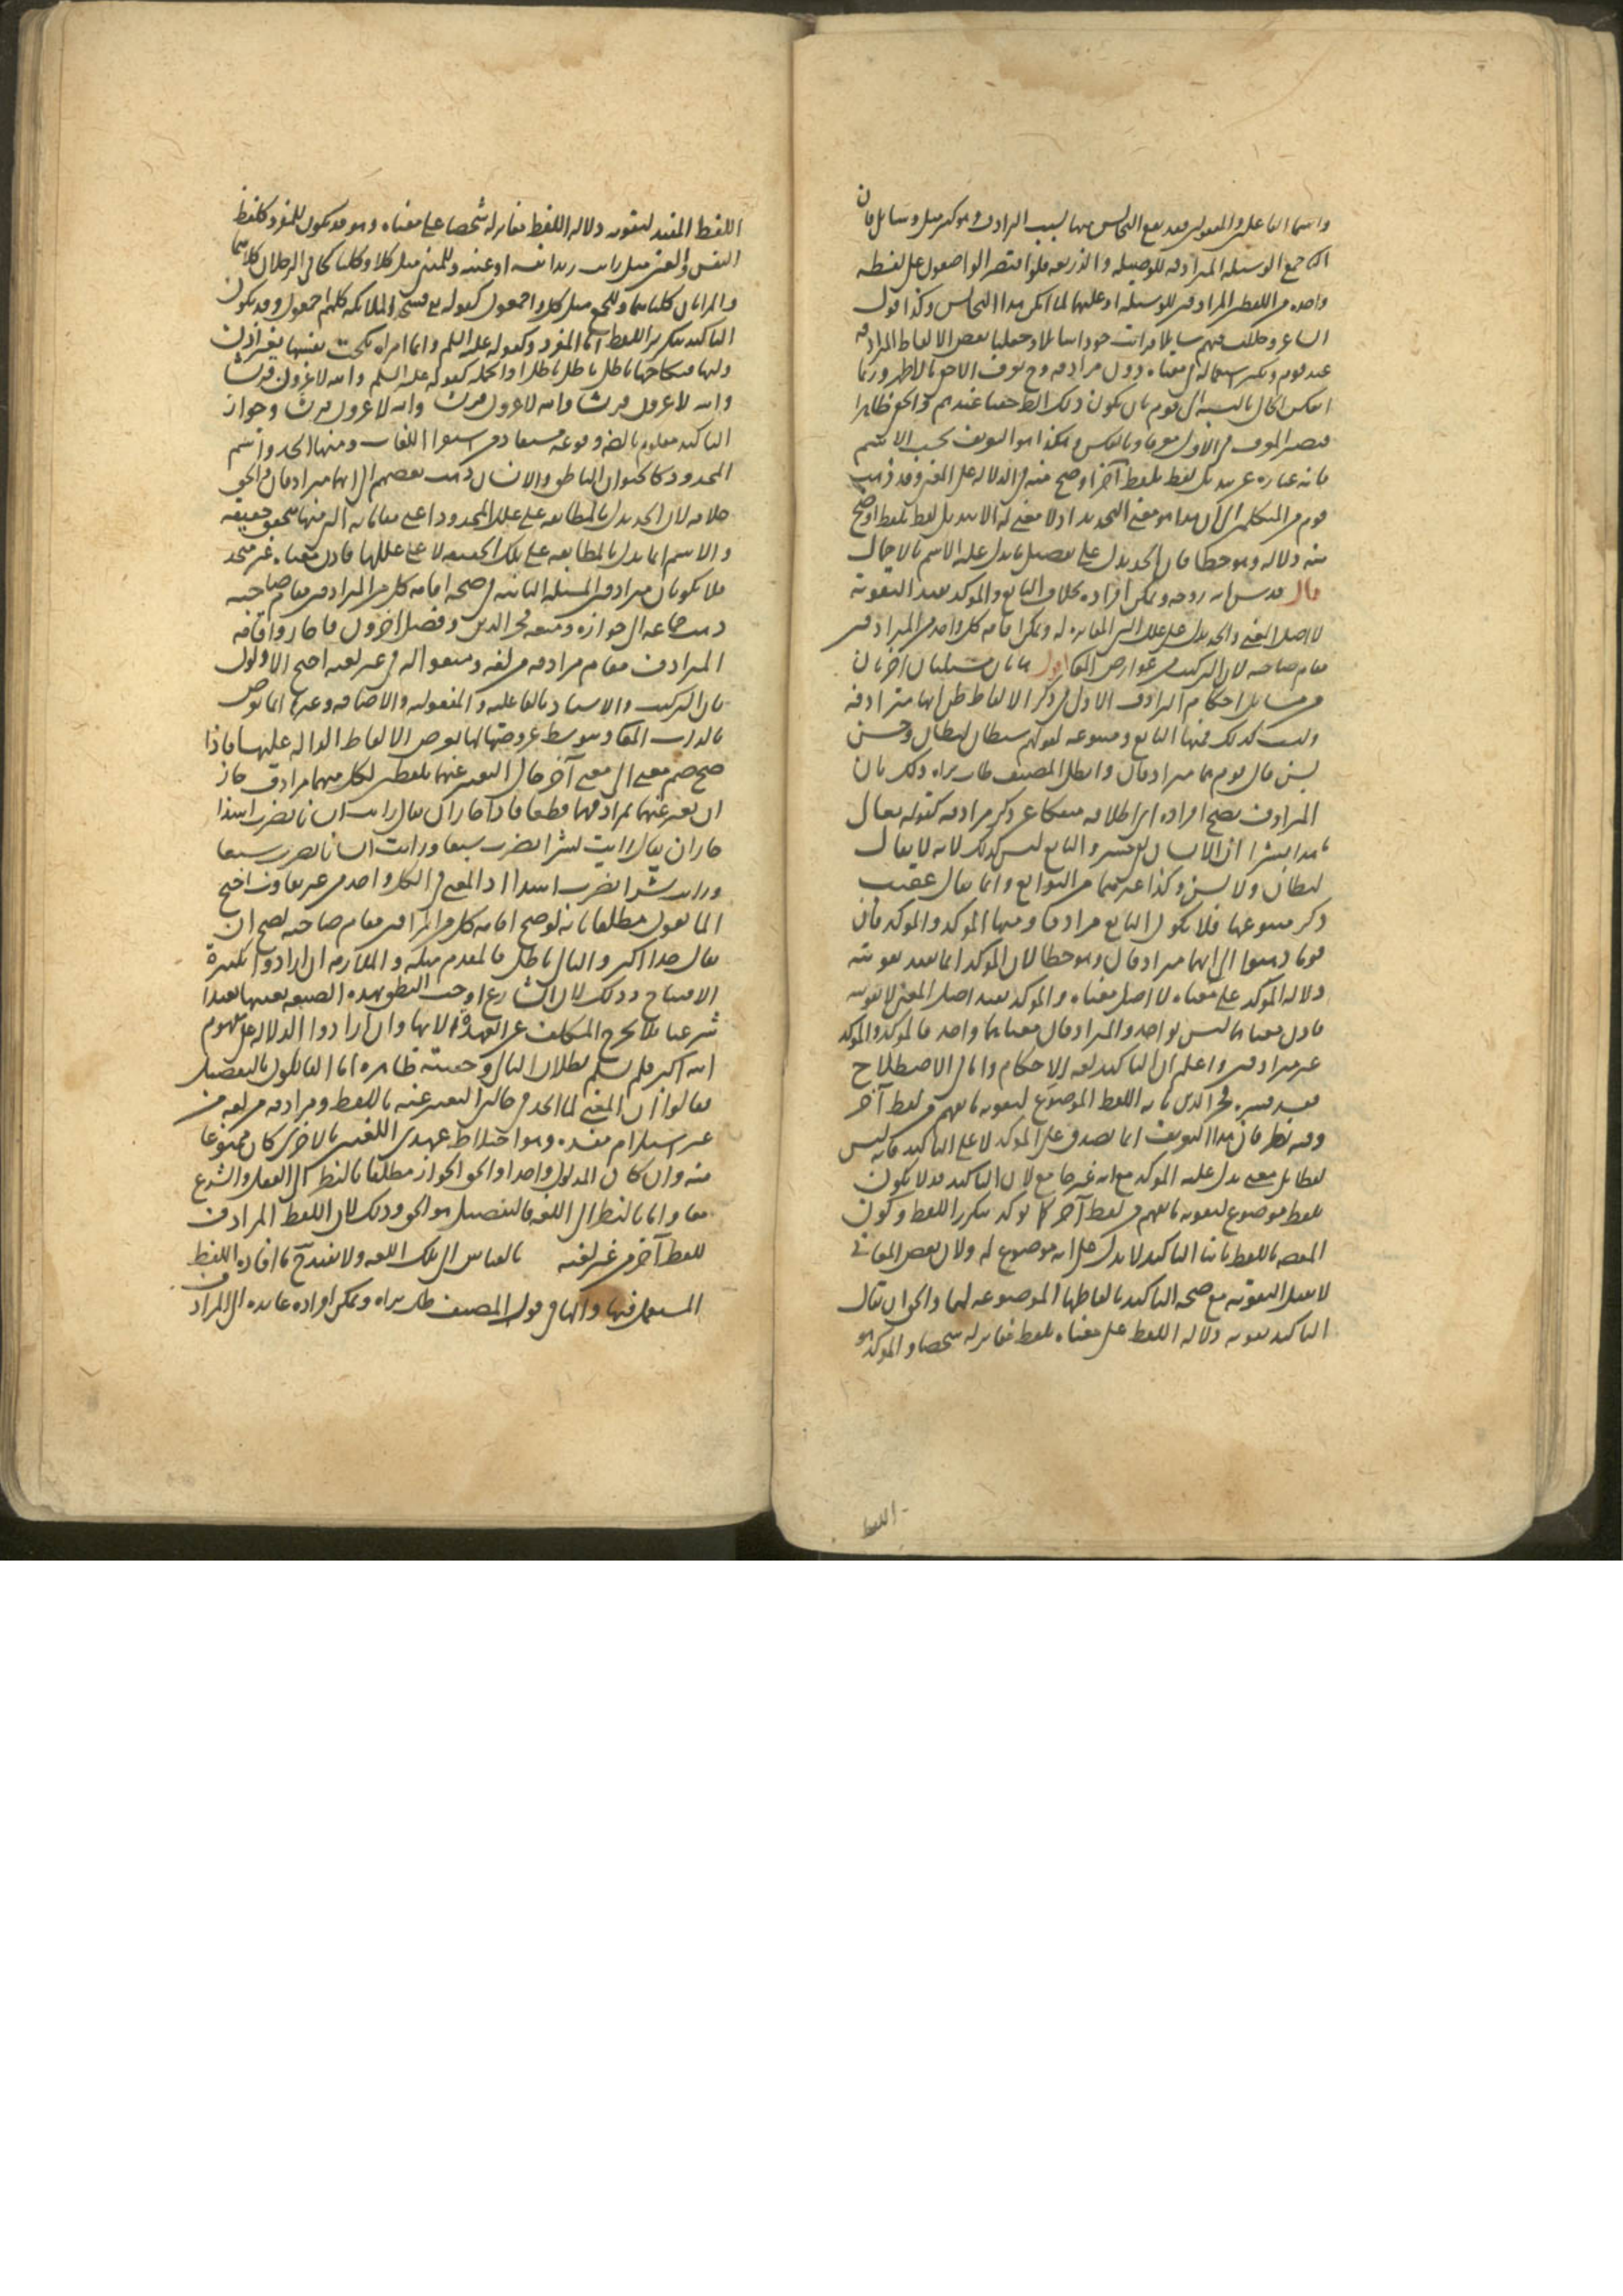 واسما الفاعلين والمفعولين فقد يقع التجانس بينهما لسبب الترادف وهو كثير مثل وسائل فان
جمع الوسيلة المرادفة للوصيلة والذريعة فلو اقتصر الواضعون على لفظة
واحدة من اللفظين المترادفين للوسيلة او عليهما لما امكن هذا التجانس وكذا قول
الشاعر بعض الالفاظ المرادفة
عند قوم وبكثر استعماله في معناه دون مرادفه وح يعرف الاخفى بالاظهر وربما
انعكس الحال بالنسبة الى قوم بان يكون ذلك الظ خفيا عندهم والخفي ظاهرا
فيصير المعرف في الاول معرفا وبالعكس وهكذا هو التعريف بحسب الاسم
فانه عبارة عن تبديل لفظ بلفظ آخر اوضح منه في الدلالة على المعنى وقد ذهب
قوم من المتكلمين الى ان هذا هو معنى التحديد اذ لا معنى له الا تبديل لفظ بلفظ اوضح
منه دلالة وهو خطا فان الحد يدل على تفصيل ما دل عليه الاسم بالاجمال
قال قدس الله روحه ويمكن افراده بخلاف التابع والموكد يفيد التقوية
لا اصل المعنى والحد يدل على علل الشي المغايرة له ويمكن اقامة كل واحد من المترادفين
مقام صاحبه لان التركيب من عوارض المعاني اقول هاتان مسئلتان اخريان
من مسائل احكام الترادف الاولى في ذكر الالفاظ ظن انها مترادفة
وليست كذلك فمنها التابع ومتبوعه كقولهم شيطان ليطان وحسن
بسن قال قوم هما مترادفان وابطل المصنف طاب ثراه ذلك بان
المترادف يصح افراده اي اطلاقه منفكا عن ذكر مرادفه كقوله تعالى
ما هذا بشرا ان الانسان لفي خسر والتابع ليس كذلك لانه لا يقال
ليطان ولا بسن وكذا غيرهما من التوابع وانما يقال عقيب
ذكر متبوعها فلا يكون التابع مرادفا ومنها الموكد والموكد فان
قوما ذهبوا الى انهما مترادفان وهو خطا لان الموكد انما يفيد تقوية
دلالة الموكد على معناه لا اصل معناه والموكد يفيد اصل المعنى لا تقويته
فاذن معناهما ليس بواحد والمترادفان معناهما واحد فالموكد والموكد
غير مترادفين واعلم ان التاكيد لغة الاحكام واما في الاصطلاح
فقد فسره فخر الدين بانه اللفظ الموضوع لتقوية ما يفهم من لفظ آخر
وفيه نظر فان هذا التعريف انما يصدق على الموكد لا على التاكيد فانه ليس
لفظا بل معنى يدل عليه الموكد مع انه غير جامع لان التاكيد قد لا يكون
بلفظ موضوع لتقوية ما يفهم من لفظ آخر كما توكد بتكرر اللفظ وكون
باللفظ ثانيا التاكيد لا يدل على انه موضوع له ولان بعض المعاني
لا يقبل التقوية مع صحة التاكيد بالفاظها الموضوعة لها والحق ان يقال
التاكيد تقوية دلالة اللفظ على معناه بلفظ مغاير له شخصا والموكد هو
اللفظ
اللفظ المفيد لتقوية دلالة اللفظ مغاير له شخصا على معناه وهو قد يكون للمفرد كلفظ
النفس والعين مثل رايت زيدا نفسه او عينه وللمثنى مثل كلا وكلتا كجاني الرجلان كلاهما
والمراتان كلتاهما وللجمع مثل كل واجمعون كقوله تع فسجد الملائكة كلهم اجمعون وقد يكون
التاكيد بتكرير اللفظ اما المفرد وكقوله عليه السلم وايما امراة نكحت نفسها بغير اذن
وليها فنكاحها باطل باطل باطل او الجملة كقوله عليه السلم والله لاغزون قريشا
والله لاغزون قريشا والله لاغزون قريشا والله لاغزون قريشا وجواز
التاكيد معلوم بالضرورة ومنها الحد واسم
المحدود كالحيوان الناطق والانسان ذهب بعضهم الى انهما مترادفان والحق
خلافه لان الحد يدل بالمطابقة على علل المحدود اعني مقوماته التي منها تتحقق حقيقته
والاسم انما يدل بالمطابقة على تلك الحقيقة لا على عللها فاذن معناه غير متحد
فلا يكونان مترادفين المسئلة الثانية في صحة اقامة كل من المترادفين مقام صاحبه
ذهب جماعة الى جوازه ومنعه فخر الدين وفصل اخرون فاجازوا اقامة
المترادف مقام مرادفه من لغته ومنعوا اقامته من غير لغته احتج الاولون
بان التركيب والاسناد بالفاعلية والمفعولية والاضافة وغيرها انما يعرض
بالذات المعاني وبتوسط عروضها لها يعرض الالفاظ الدالة عليها فاذا
صح ضم معنى الى معنى آخر حال التعبير عنهما بلفظين لكل منهما مرادف جاز
ان يعبر عنهما بمرادفهما قطعا فاذا جاز ان يقال رايت انسانا يضرب اسدا
جاز ان يقال رايت بشرا يضرب سبعا ورايت انسانا يضرب سبعا
ورايت بشرا يضرب اسدا اذ المعنى في الكل واحد من غير تفاوت احتج
المانعون مطلقا بانه لو صح اقامة كل من المترادفين مقام صاحبه لصح ان
يقال خدا اكبر والتالي باطل فالمقدم مثله والملازمة ان ارادوا تكبيرة
الافتتاح وذلك لان الشارع اوجب النطق بهذه الصيغة بعينها تعبدا
شرعيا فلا يخرج المكلف عن العهدة الا بها وان ارادوا الدلالة على مفهوم
الله اكبر فلم نسلم بطلان التالي وحقيته ظاهرة اما القائلون بالتفصيل
فقالوا ان المعنى لما اتحد في حالتي التعبير عنه باللفظ ومرادفه من لغته من
غير استلزام مفسدة وهو اختلاط احدى اللغتين بالاخرى كان ممنوعا
منه وان كان المدلول واحدا والحق الجواز مطلقا بالنظر الى العقل والشرع
معا واما بالنظر الى اللغة فالتفصيل هو الحق وذلك لان اللفظ المرادف
للفظ آخر من غير لغته بالقياس الى تلك اللغة ولا يقدح ما افاده اللفظ
المستعمل فيها والهاء في قول المصنف طاب ثراه ويمكن افراده عايدة الى المرادف